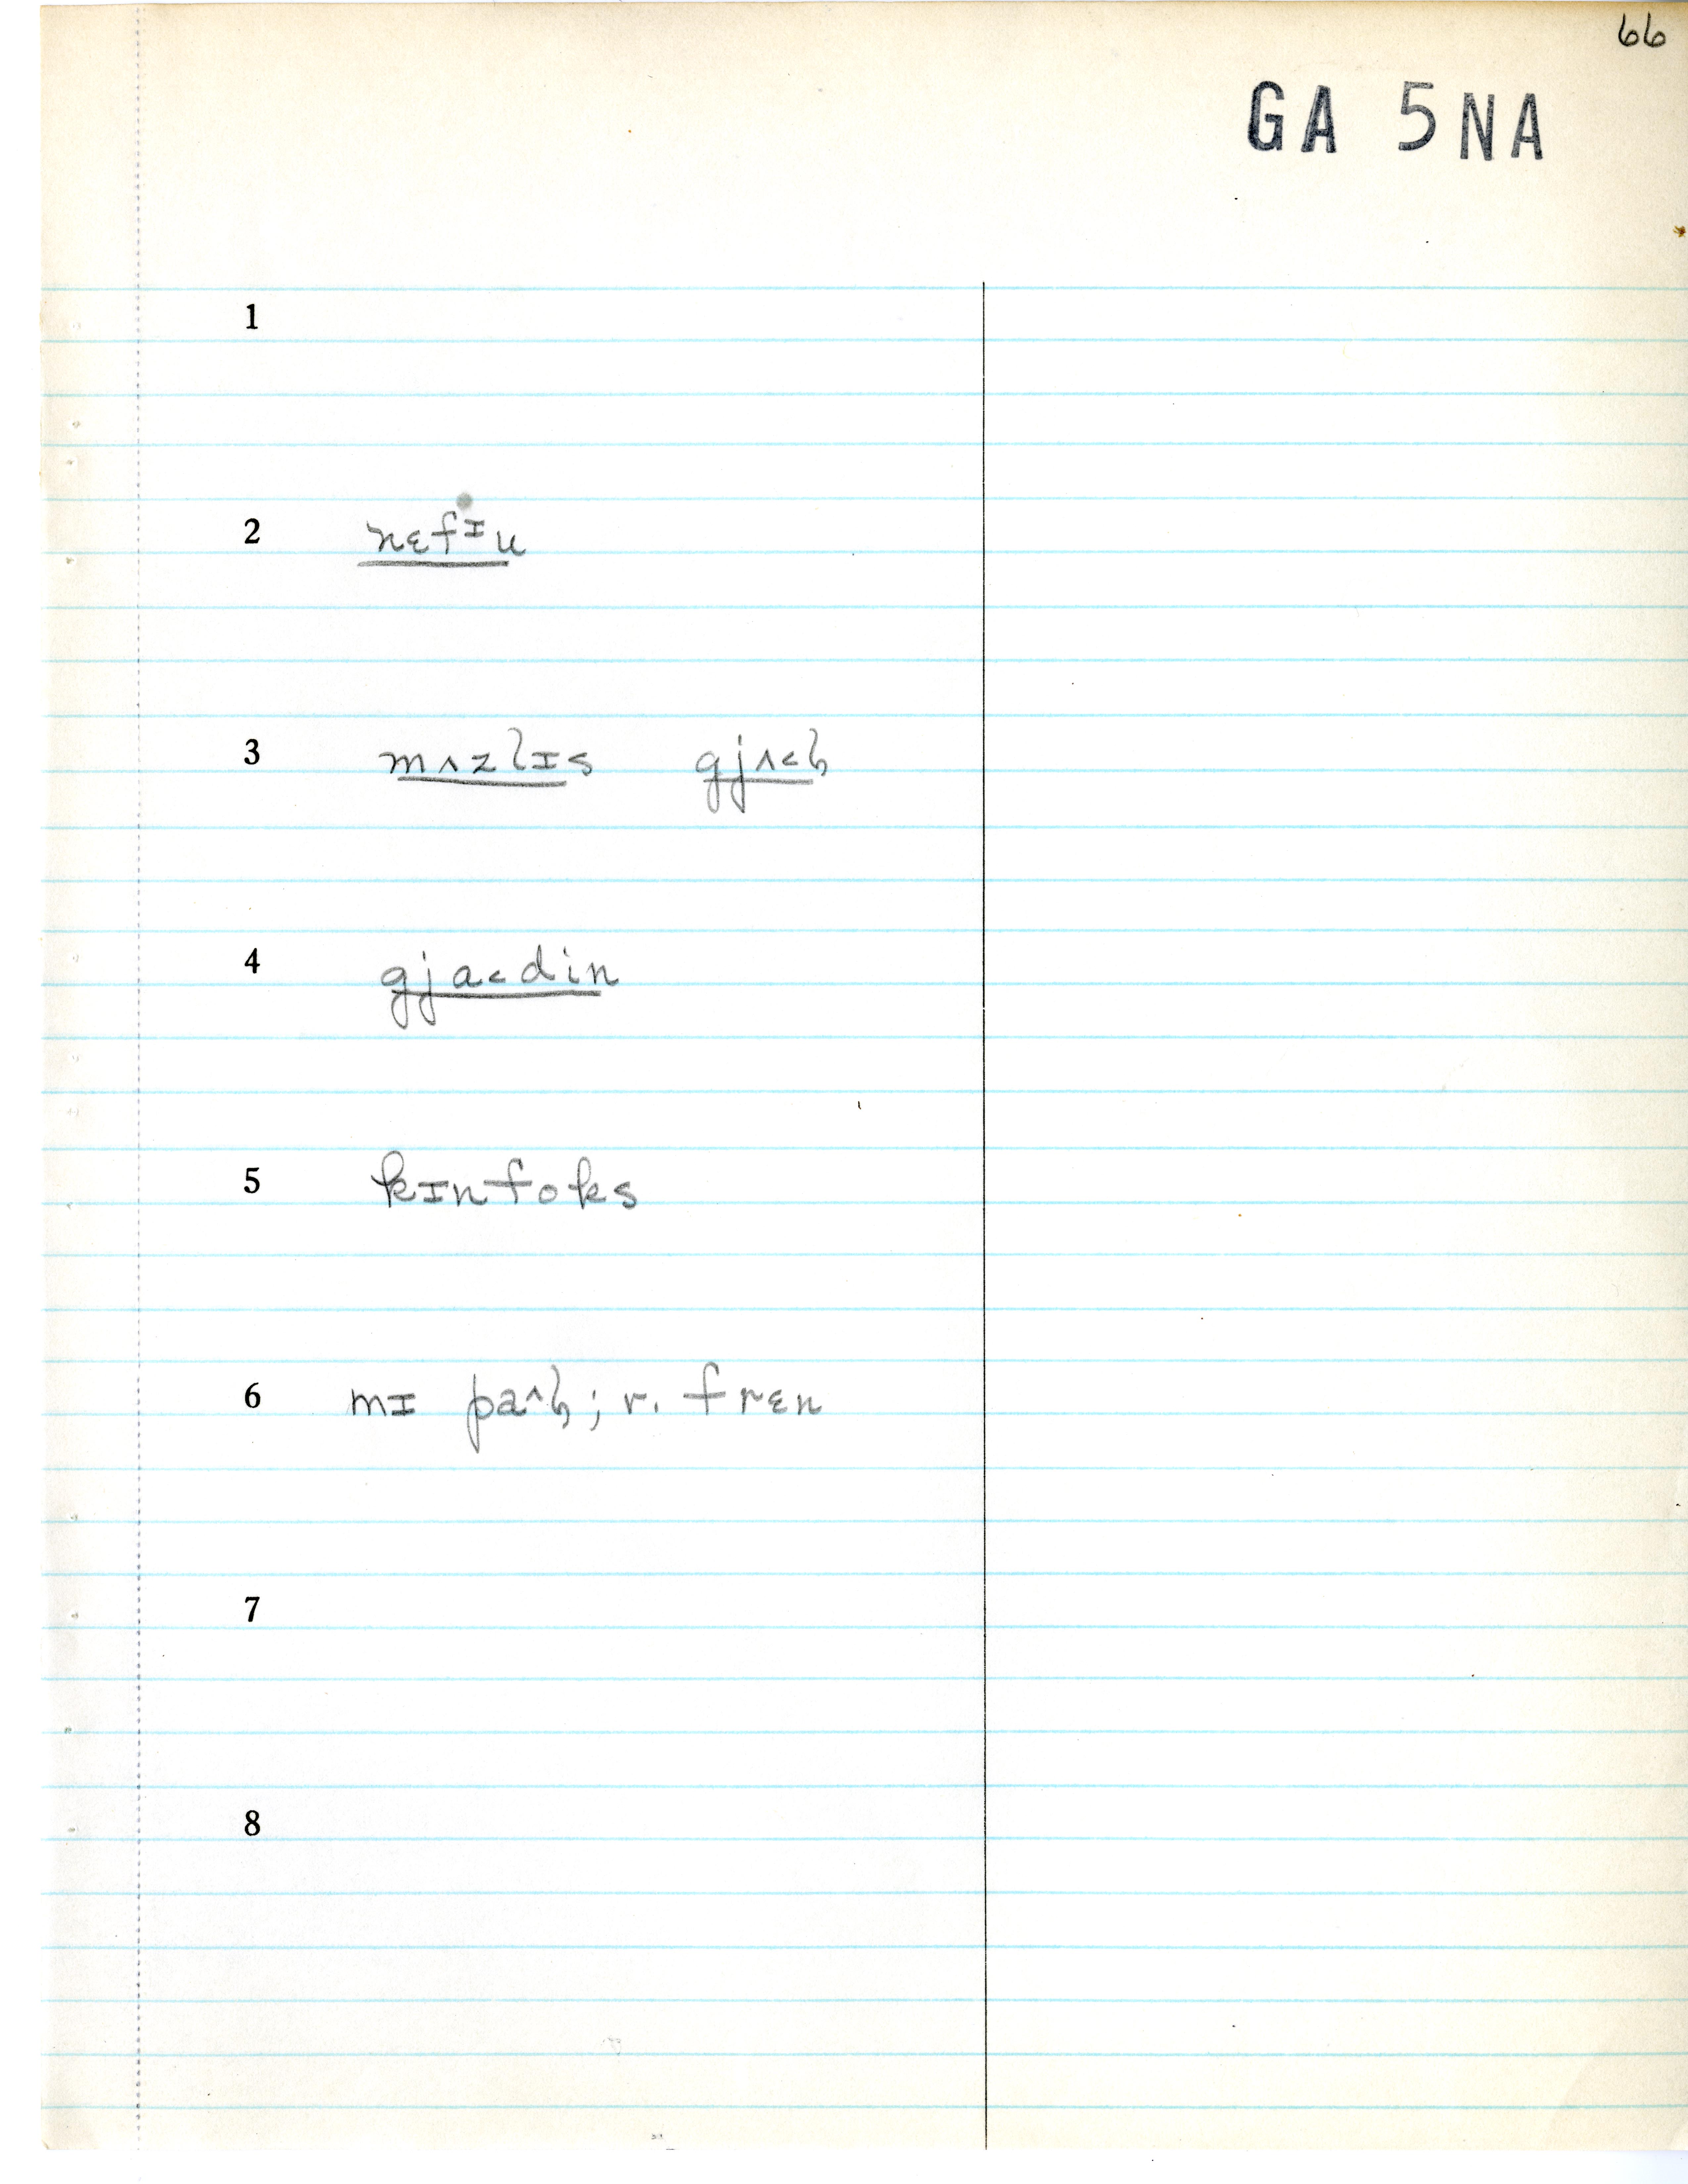 66
GA 5NA
1
2 nɛfɪu
3 mʌzlɪs gjʌ<ɫ
4 gja<din
5 kɪnfoks
6 mɪ pa^ɫ; r. frɛn
7
8